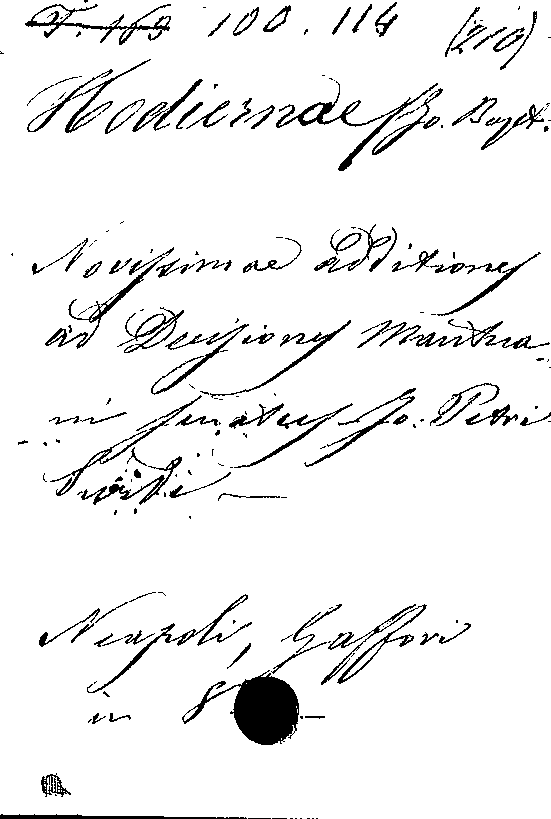 F. 163 100. 114 (210)
Hodiernae Jo. Bapt.
Novissimae additiones
ad Decisiones Mantua-
ni Senatus Jo. Petri
Surdi —
Neapoli, Gaffori
in 8 —